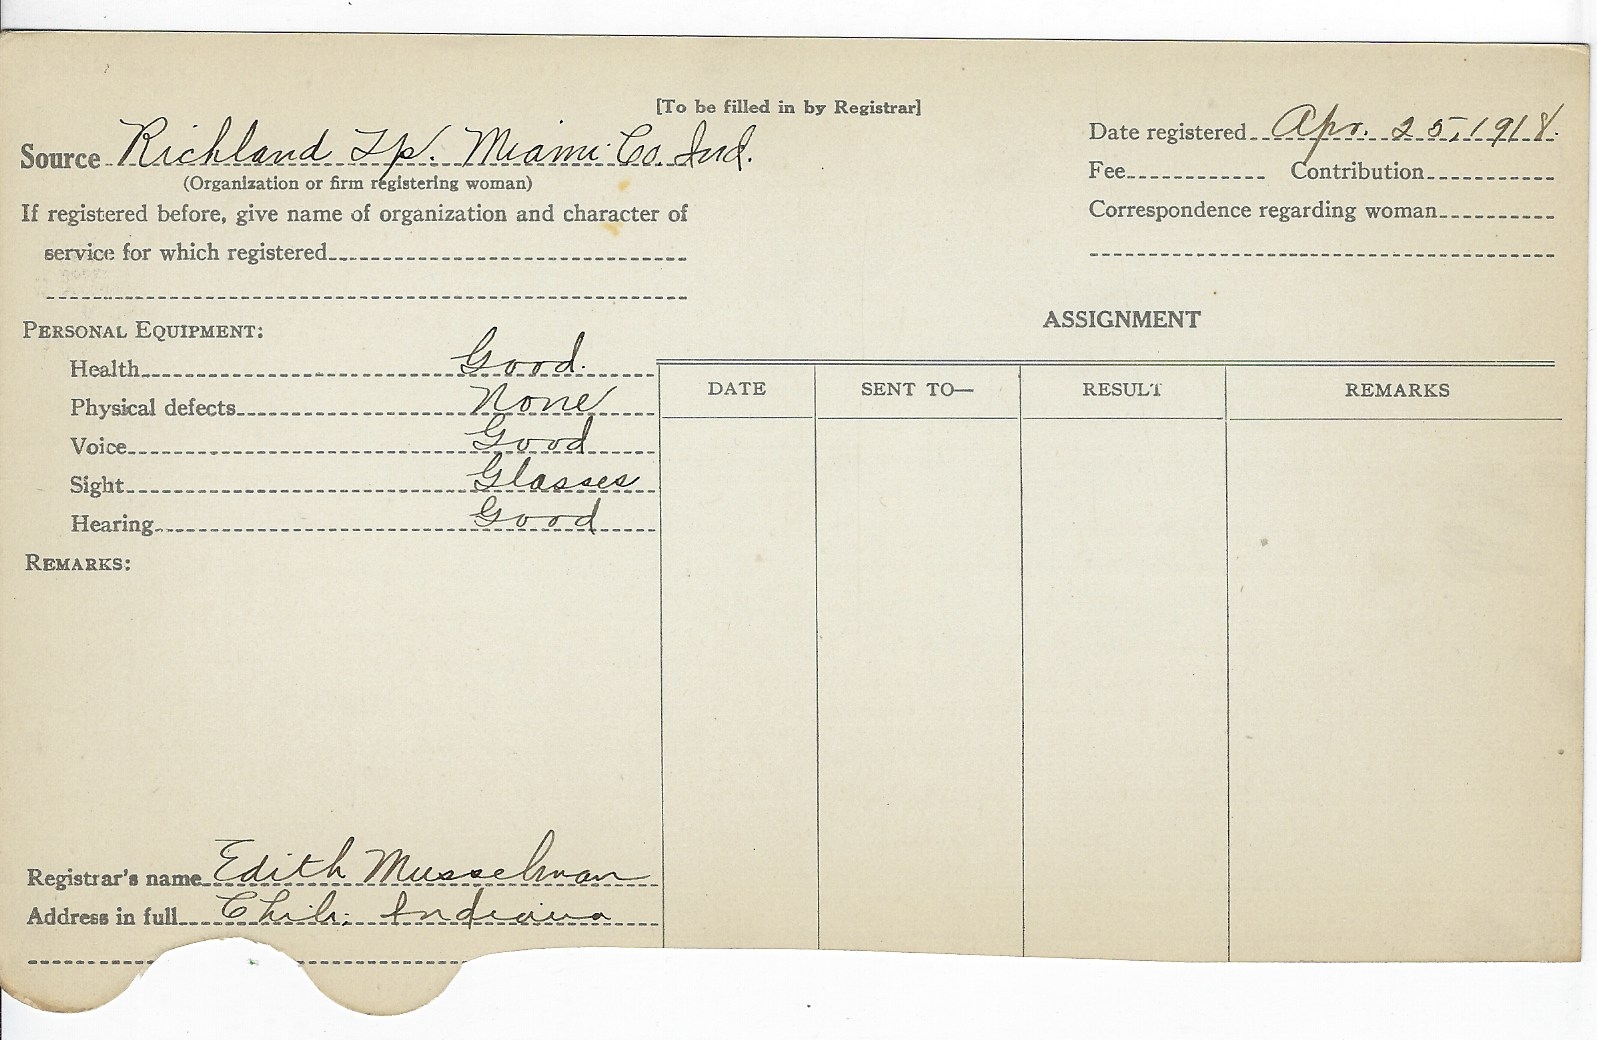 [To be filled in by Registrar]
Source Richland Tp. Miami Co. Ind.
(Organization or firm registering woman)
If registered before, give name of organization and character of
service for which registered
Date registered Apr. 25, 1918.
Fee Contribution
Correspondence regarding woman
PERSONAL EQUIPMENT:
Health Good.
Physical defects None
Voice Good
Sight Glasses
Hearing Good
REMARKS:
ASSIGNMENT
DATE SENT TO— RESULT REMARKS
Registrar's name Edith Musselman
Address in full Chili, Indiana